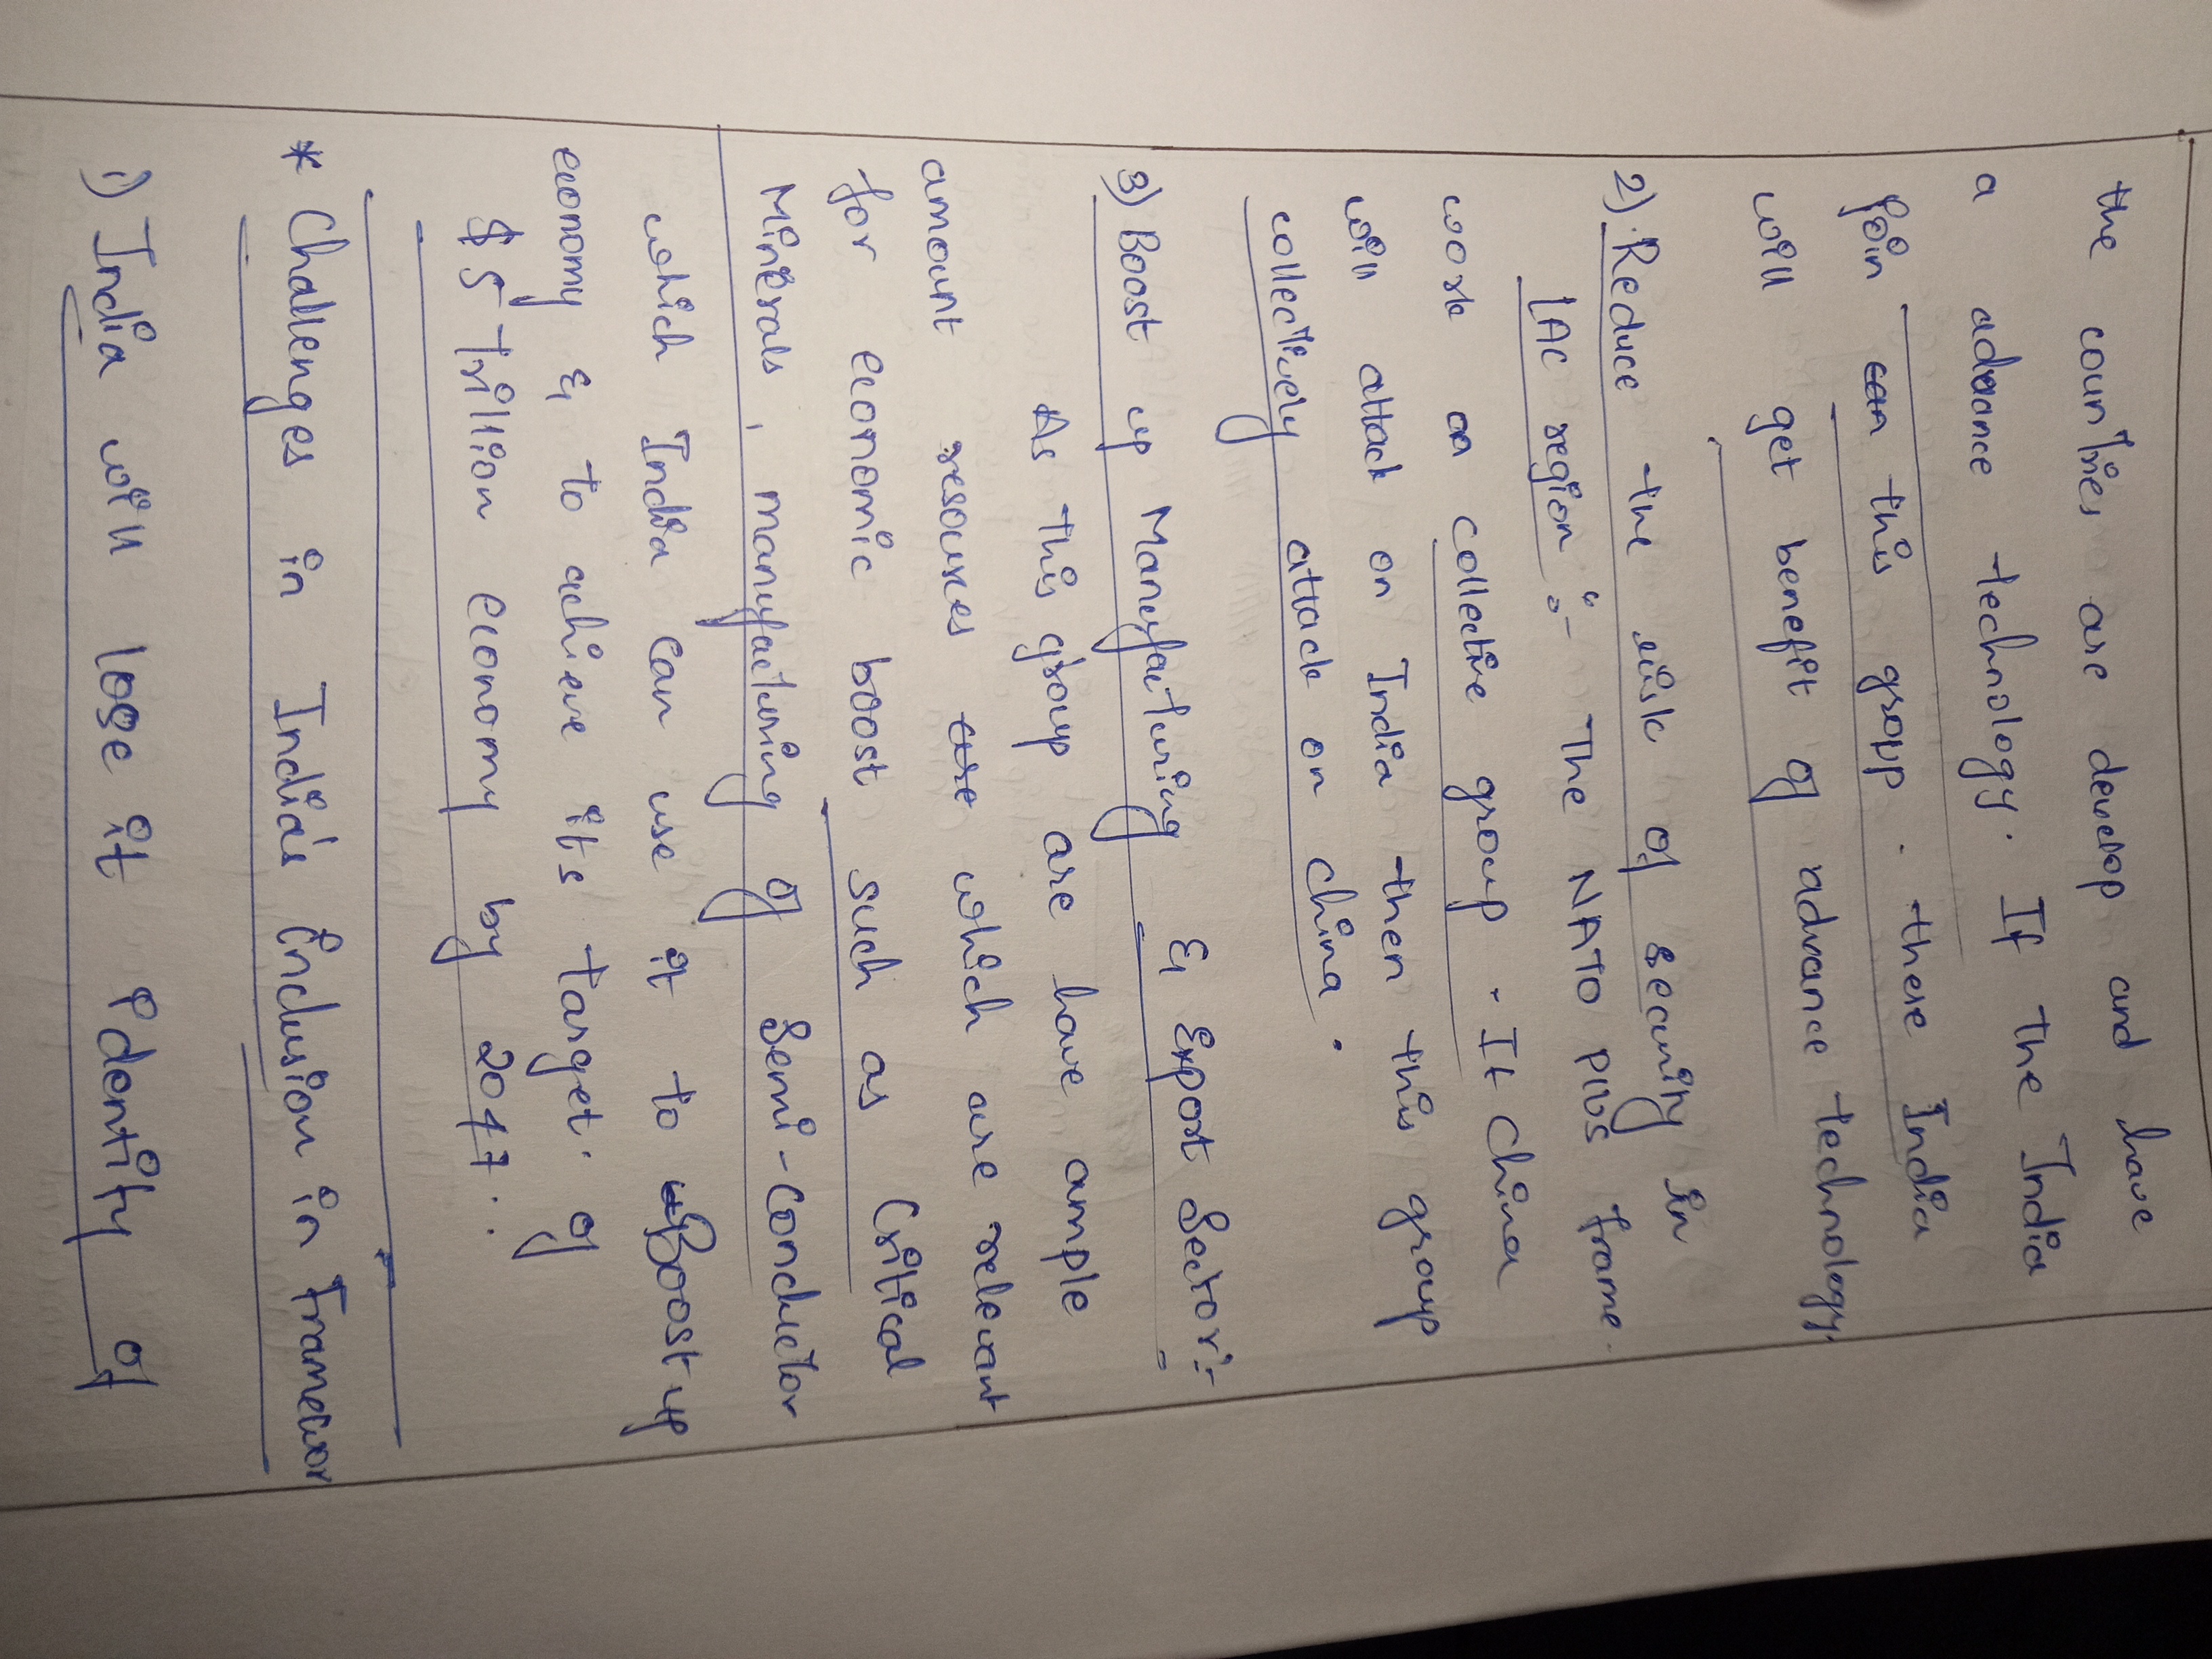 the countries are develop and have
a advance technology. If the India
join this group. there India
will get benefit of advance technology.
2) Reduce the risk of security in
LAC region :- The NATO plus frame
work on collective group. If China
will attack on India then this group
collectively attack on china.
3) Boost up Manufacturing & Export Sector :-
As this group are have ample
amount resources which are relevant
for economic boost such as Critical
Minerals, manufacturing of Semi-Conductor
which India can use it to Boost up
economy & to achieve its target. of
$5 trillion economy by 2047..
* Challenges in India's Inclusion in Framewor
1) India will lose it identity of